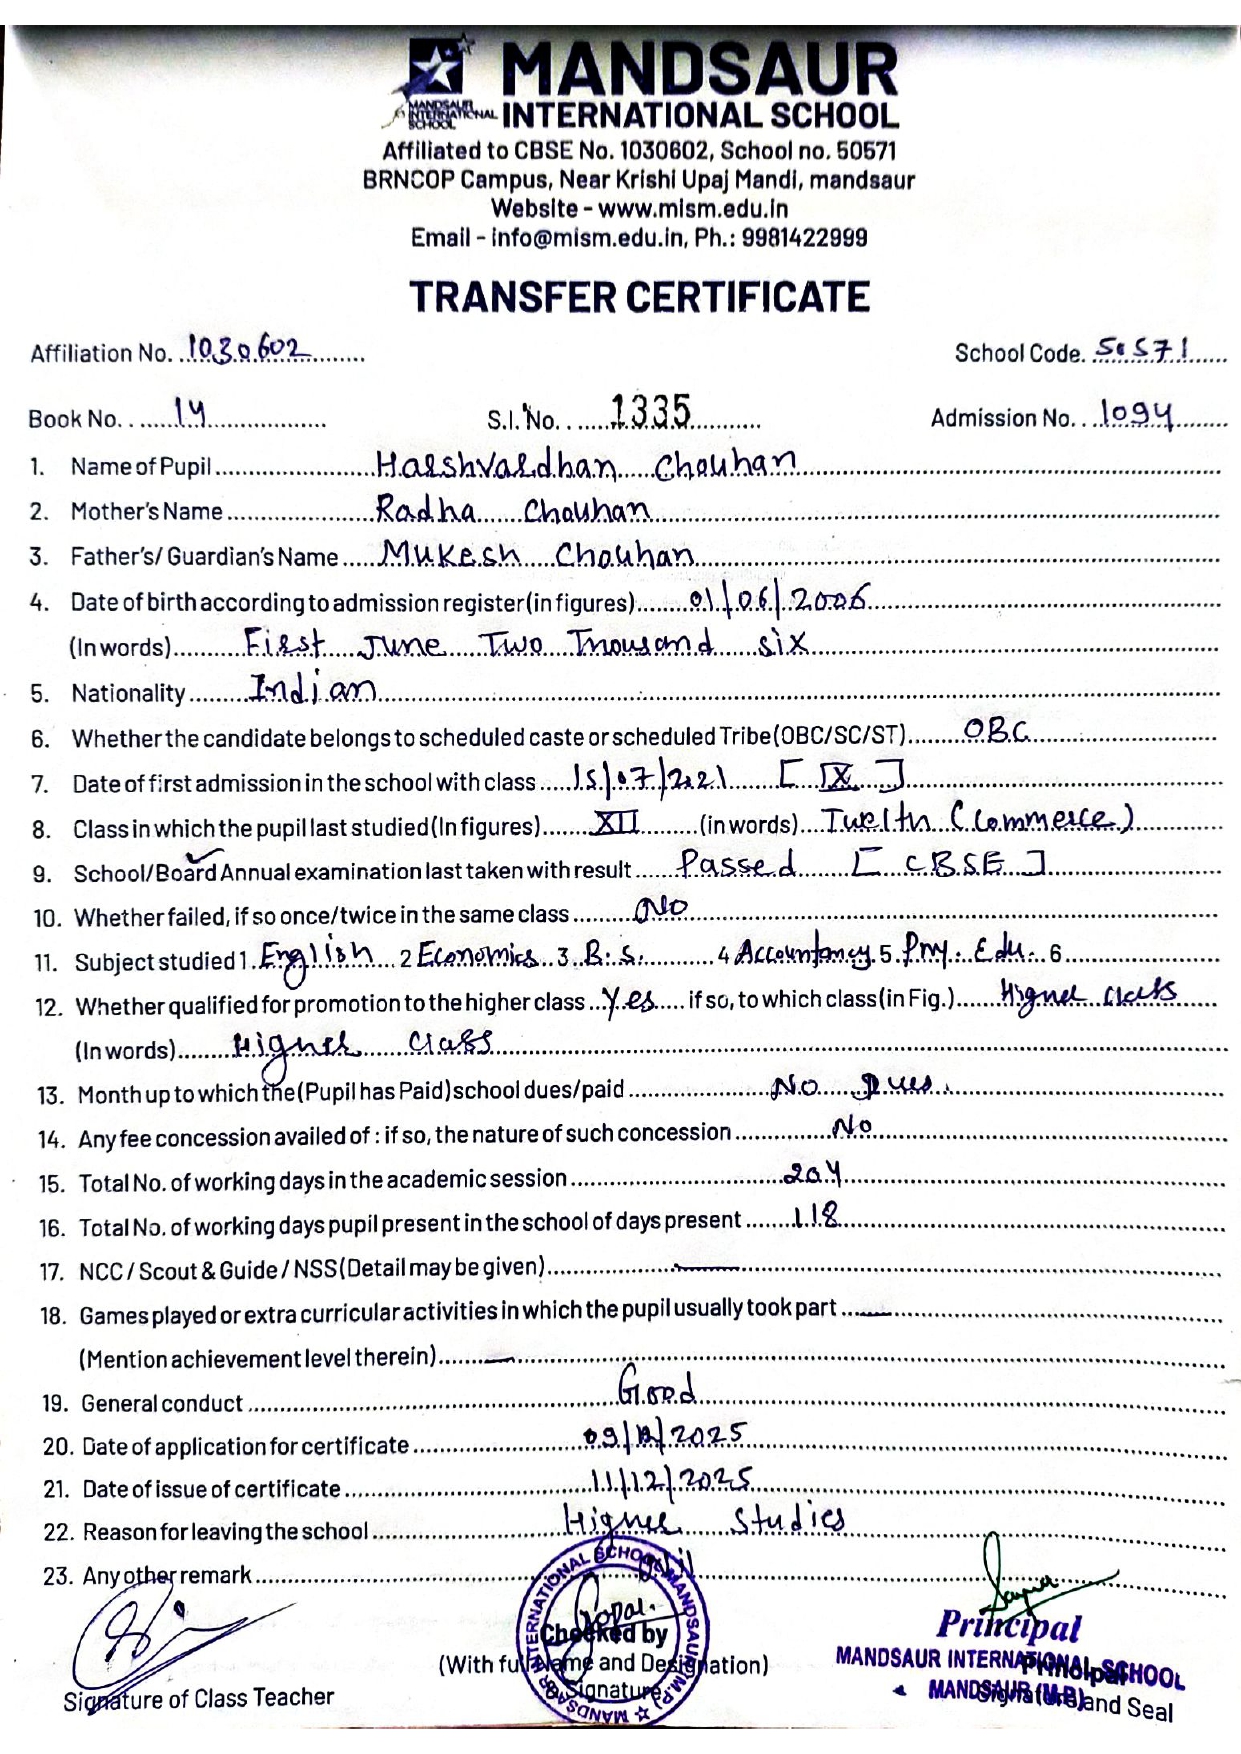 MANDSAUR
INTERNATIONAL SCHOOL
MANDSAUR INTERNATIONAL SCHOOL
Affiliated to CBSE No. 1030602, School no. 50571
BRNCOP Campus, Near Krishi Upaj Mandi, mandsaur
Website - www.mism.edu.in
Email - info@mism.edu.in, Ph.: 9981422999
TRANSFER CERTIFICATE
Affiliation No. 1030602 School Code. 50571
Book No. 14 S.I. No. 1335 Admission No. 1094
1. Name of Pupil Harshvardhan Chouhan
2. Mother's Name Radha Chouhan
3. Father's/ Guardian's Name Mukesh Chouhan
4. Date of birth according to admission register (in figures) 01/06/2006
(In words) First June Two Thousand Six
5. Nationality Indian
6. Whether the candidate belongs to scheduled caste or scheduled Tribe (OBC/SC/ST) OBC
7. Date of first admission in the school with class 15/07/2021 [IX]
8. Class in which the pupil last studied (In figures) XII (in words) Twelth (Commerce)
9. School/Board Annual examination last taken with result Passed [CBSE]
10. Whether failed, if so once/twice in the same class No
11. Subject studied 1 English 2 Economics 3 B.S. 4 Accountancy 5 Phy. Edu. 6
12. Whether qualified for promotion to the higher class Yes if so, to which class (in Fig.) Higher Class
(In words) Higher Class
13. Month up to which the (Pupil has Paid) school dues/paid No Dues.
14. Any fee concession availed of : if so, the nature of such concession No
15. Total No. of working days in the academic session 204
16. Total No. of working days pupil present in the school of days present 118
17. NCC / Scout & Guide / NSS (Detail may be given)
18. Games played or extra curricular activities in which the pupil usually took part
(Mention achievement level therein)
19. General conduct Good
20. Date of application for certificate 09/12/2025
21. Date of issue of certificate 11/12/2025
22. Reason for leaving the school Higher Studies
23. Any other remark
Signature of Class Teacher
Checked by
(With full Name and Designation)
Signature
Principal
MANDSAUR INTERNATIONAL SCHOOL
MANDSAUR (M.P.)
Principal
Signature and Seal